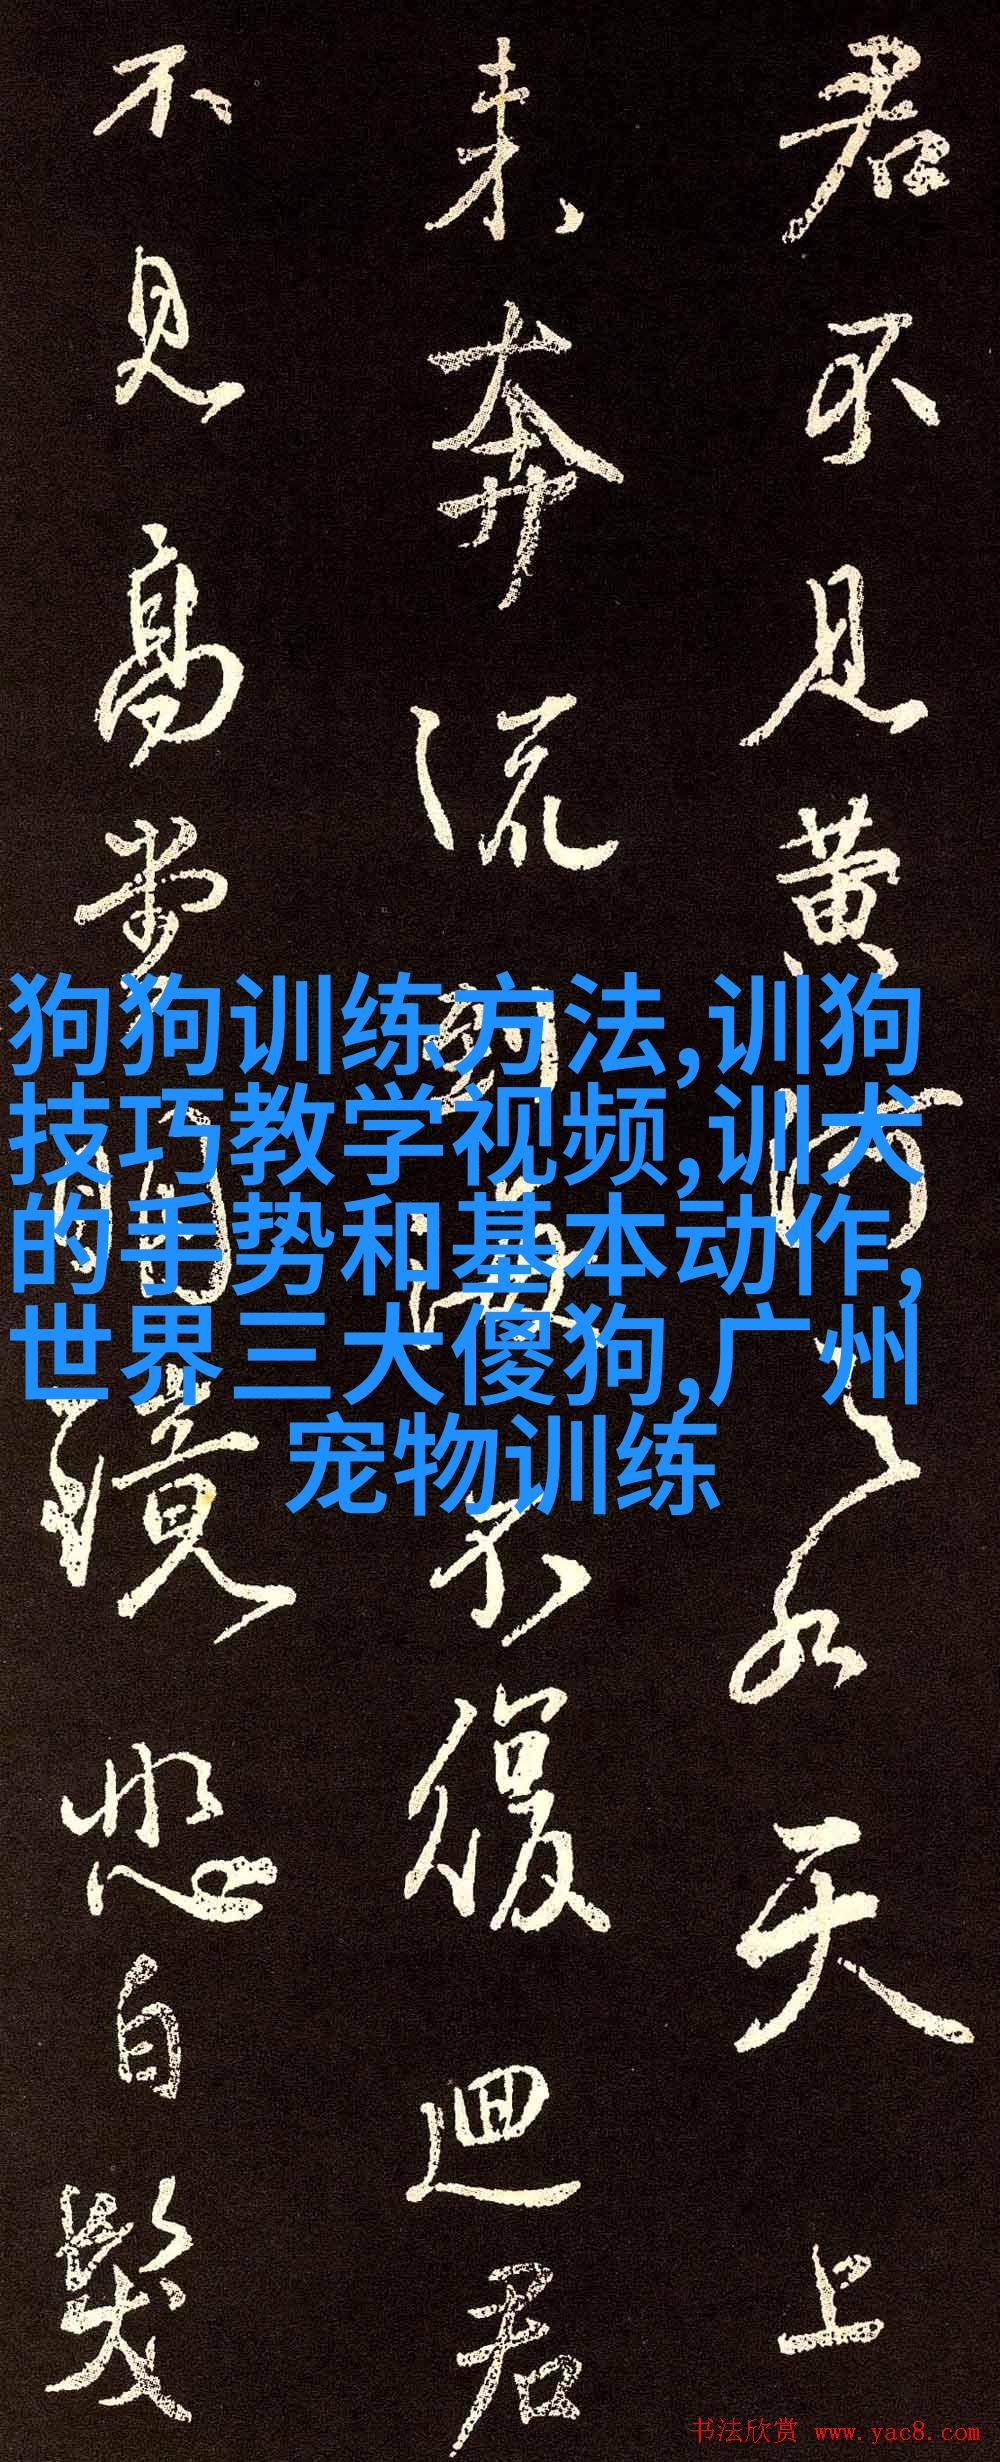 君不见黄河之水天上
来奔流到海不復迴君
不見高堂明鏡悲白髮
狗狗训练方法,训狗
技巧教学视频,训犬
的手势和基本动作,
世界三大傻狗,广州
宠物训练
书法欣赏 www.yac8.com